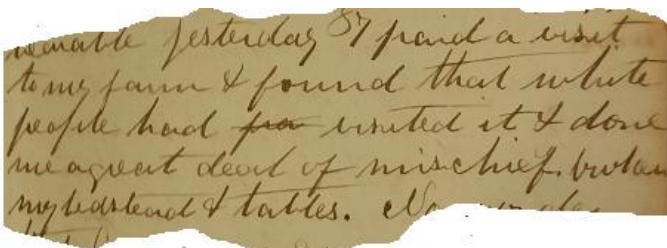 yesterday I paid a visit
to my farm & found that white
people had visited it & done
me a great deal of mischief. broken
my bedstead & tables.